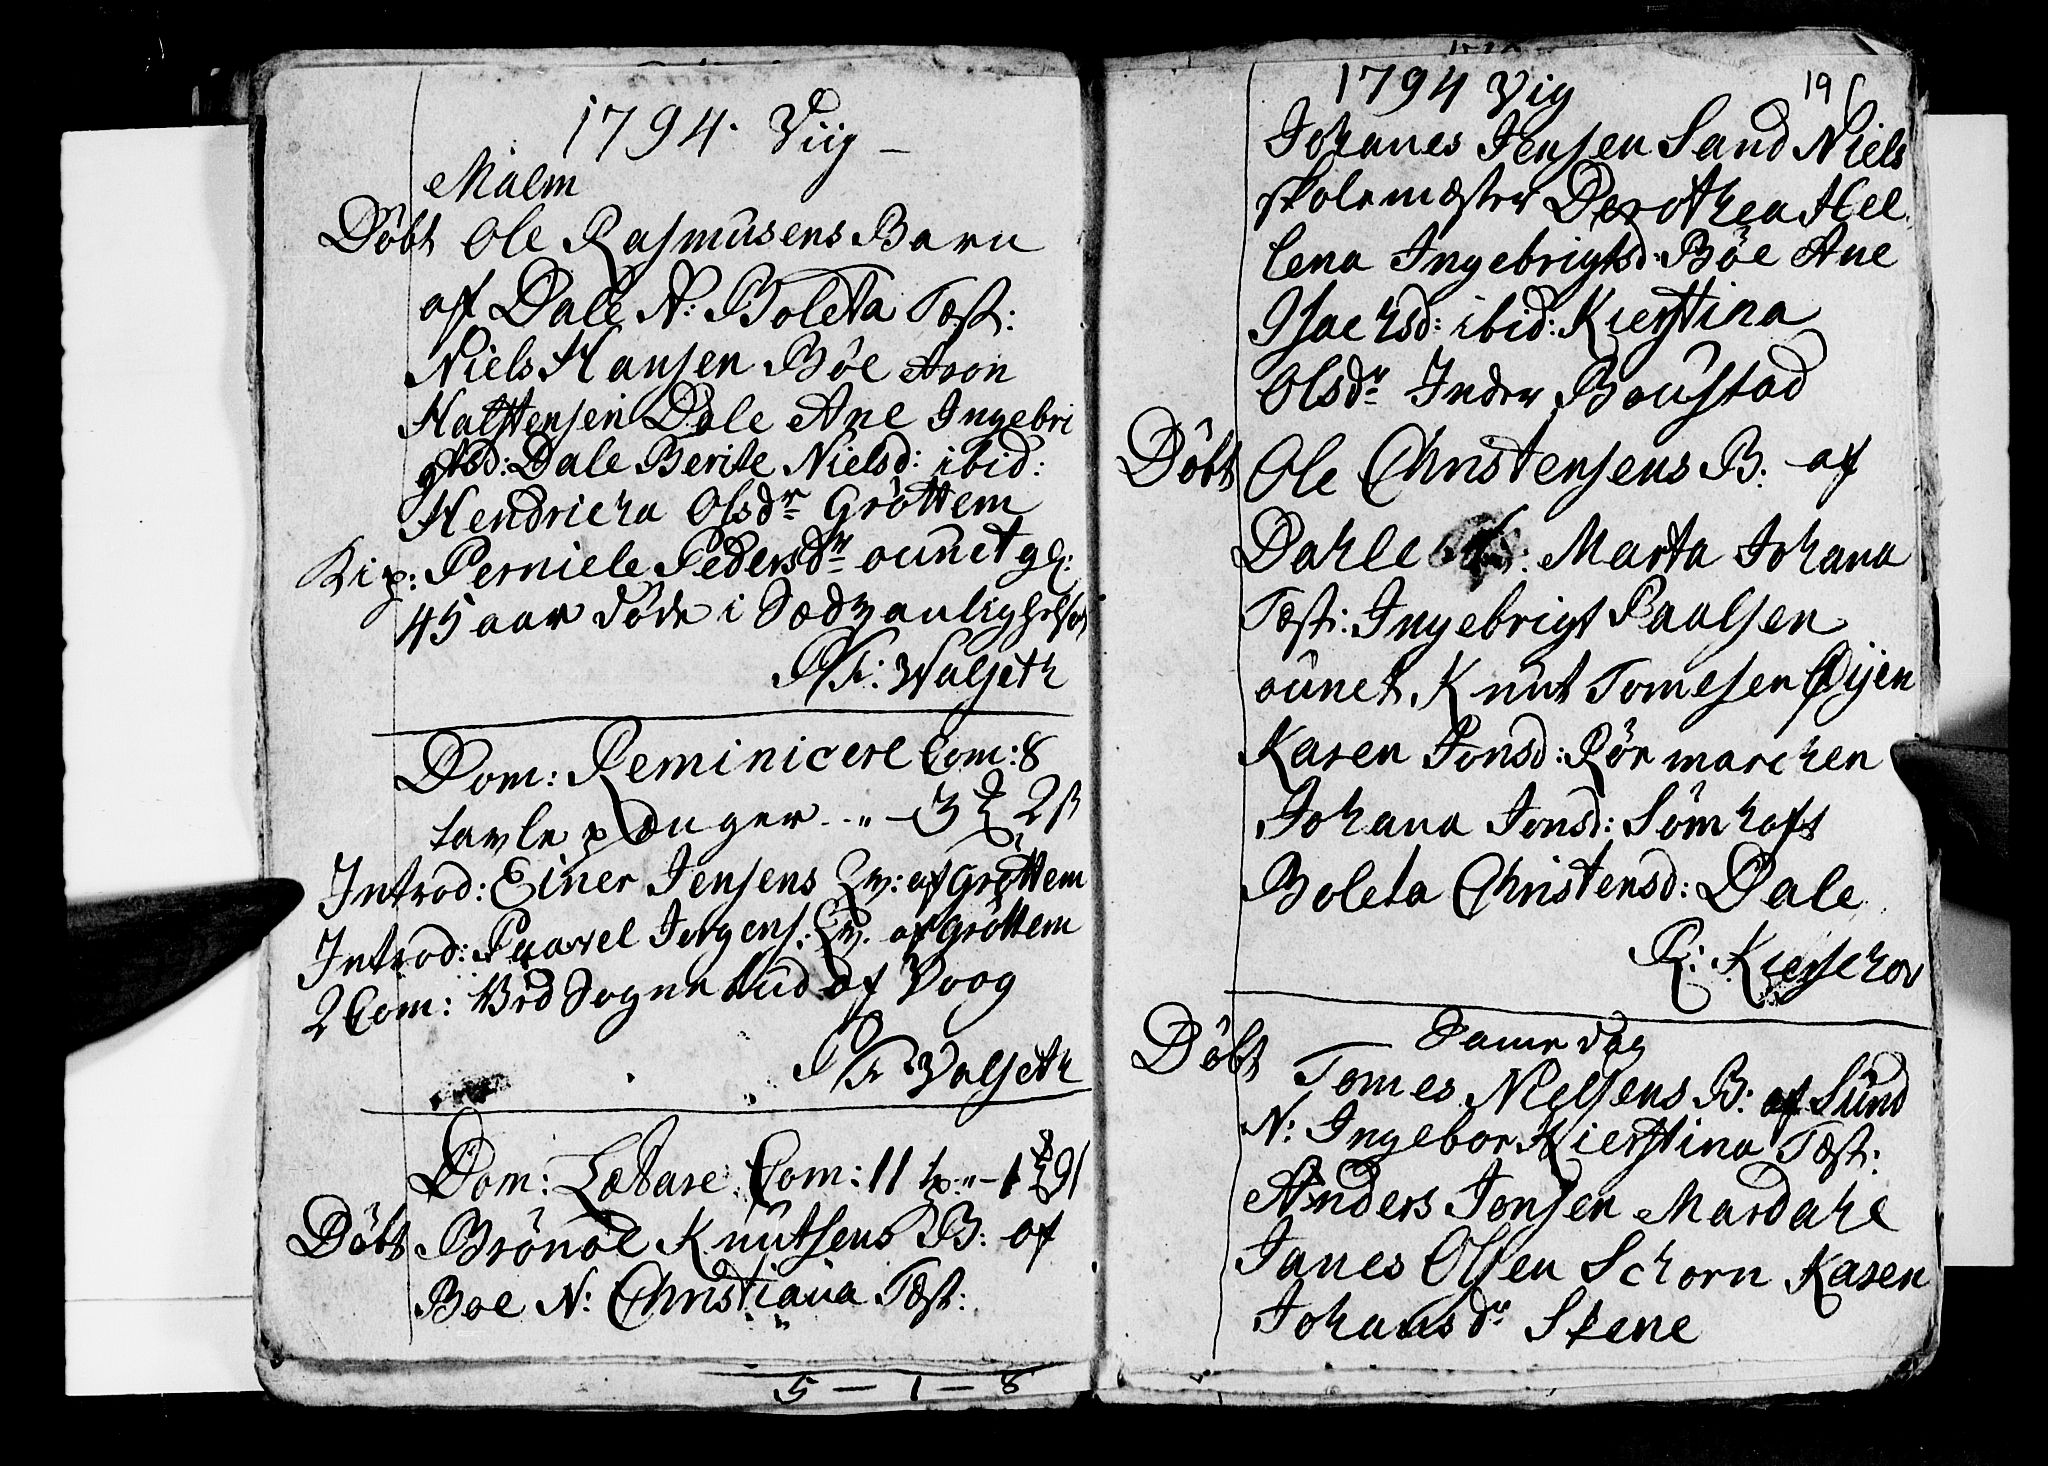 1794. Viig –
Malm
Döbt Ole Rasmusens Barn
af Dale N: Boleta Test:
Niels Hansen Böe Aron
Halstensen Dale Ane Ingebri
gtsd: Dale Berite Nielsd: ibid:
Hendricha Olsdr Gröttem
Perniele Pedersdr ounet gl:
45 aar döde i
Walseth
Dom: Reminicere Com: 8
tavle penger - „ - 3 2 ß
Introd: Einer Jensens af Gröttem
Introd: Paavel Jörgens: af Gröttem
2 Com: Bud af Voog
Walseth
Dom: Lætare Com: 11 tp: „ - 1
Döbt Brönöl Knutsens B: af
Boe N: Christiana Test:
5 — 1 — 8
1794 Vig 196
Johanes Jensen Sand Niels
skolemæster Dorothea Hel
lena Ingebrigtsd: Böe Ane
Isachsd: ibid: Kierstina
Olsdr Inder Boustad
Döbt Ole Christensens B: af
Dahle N: Marta Johana
Test: Ingebrigt Paalsen
ounet Knut Tomesen Öijen
Karen Jonsd: Rörmarchen
Johana Jonsd: Sömhoft
Boleta Christensd: Dale
R: Kierschou
Same Dag
Döbt Tomes Nielsens B: af Sund
N: Ingebor Kierstina Test:
Anders Jonsen Mardahl
Janes Olsen Schorn Karen
Johansdr Skene